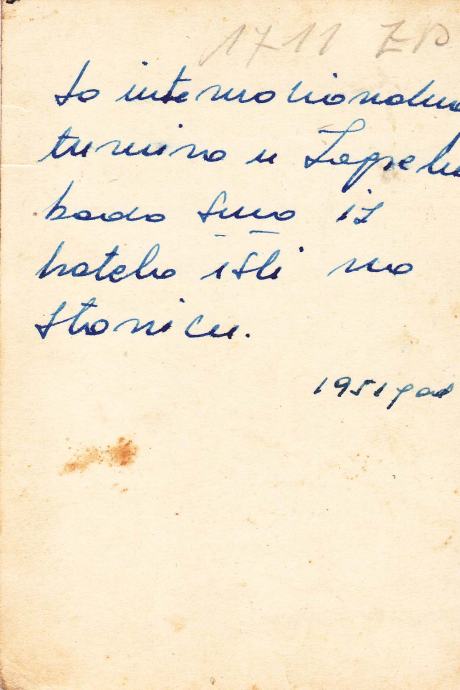 1711 ZB
sa internacionalnog
turnira u Zagrebu
kada smo iz
hotela išli na
stanicu.
1951 god